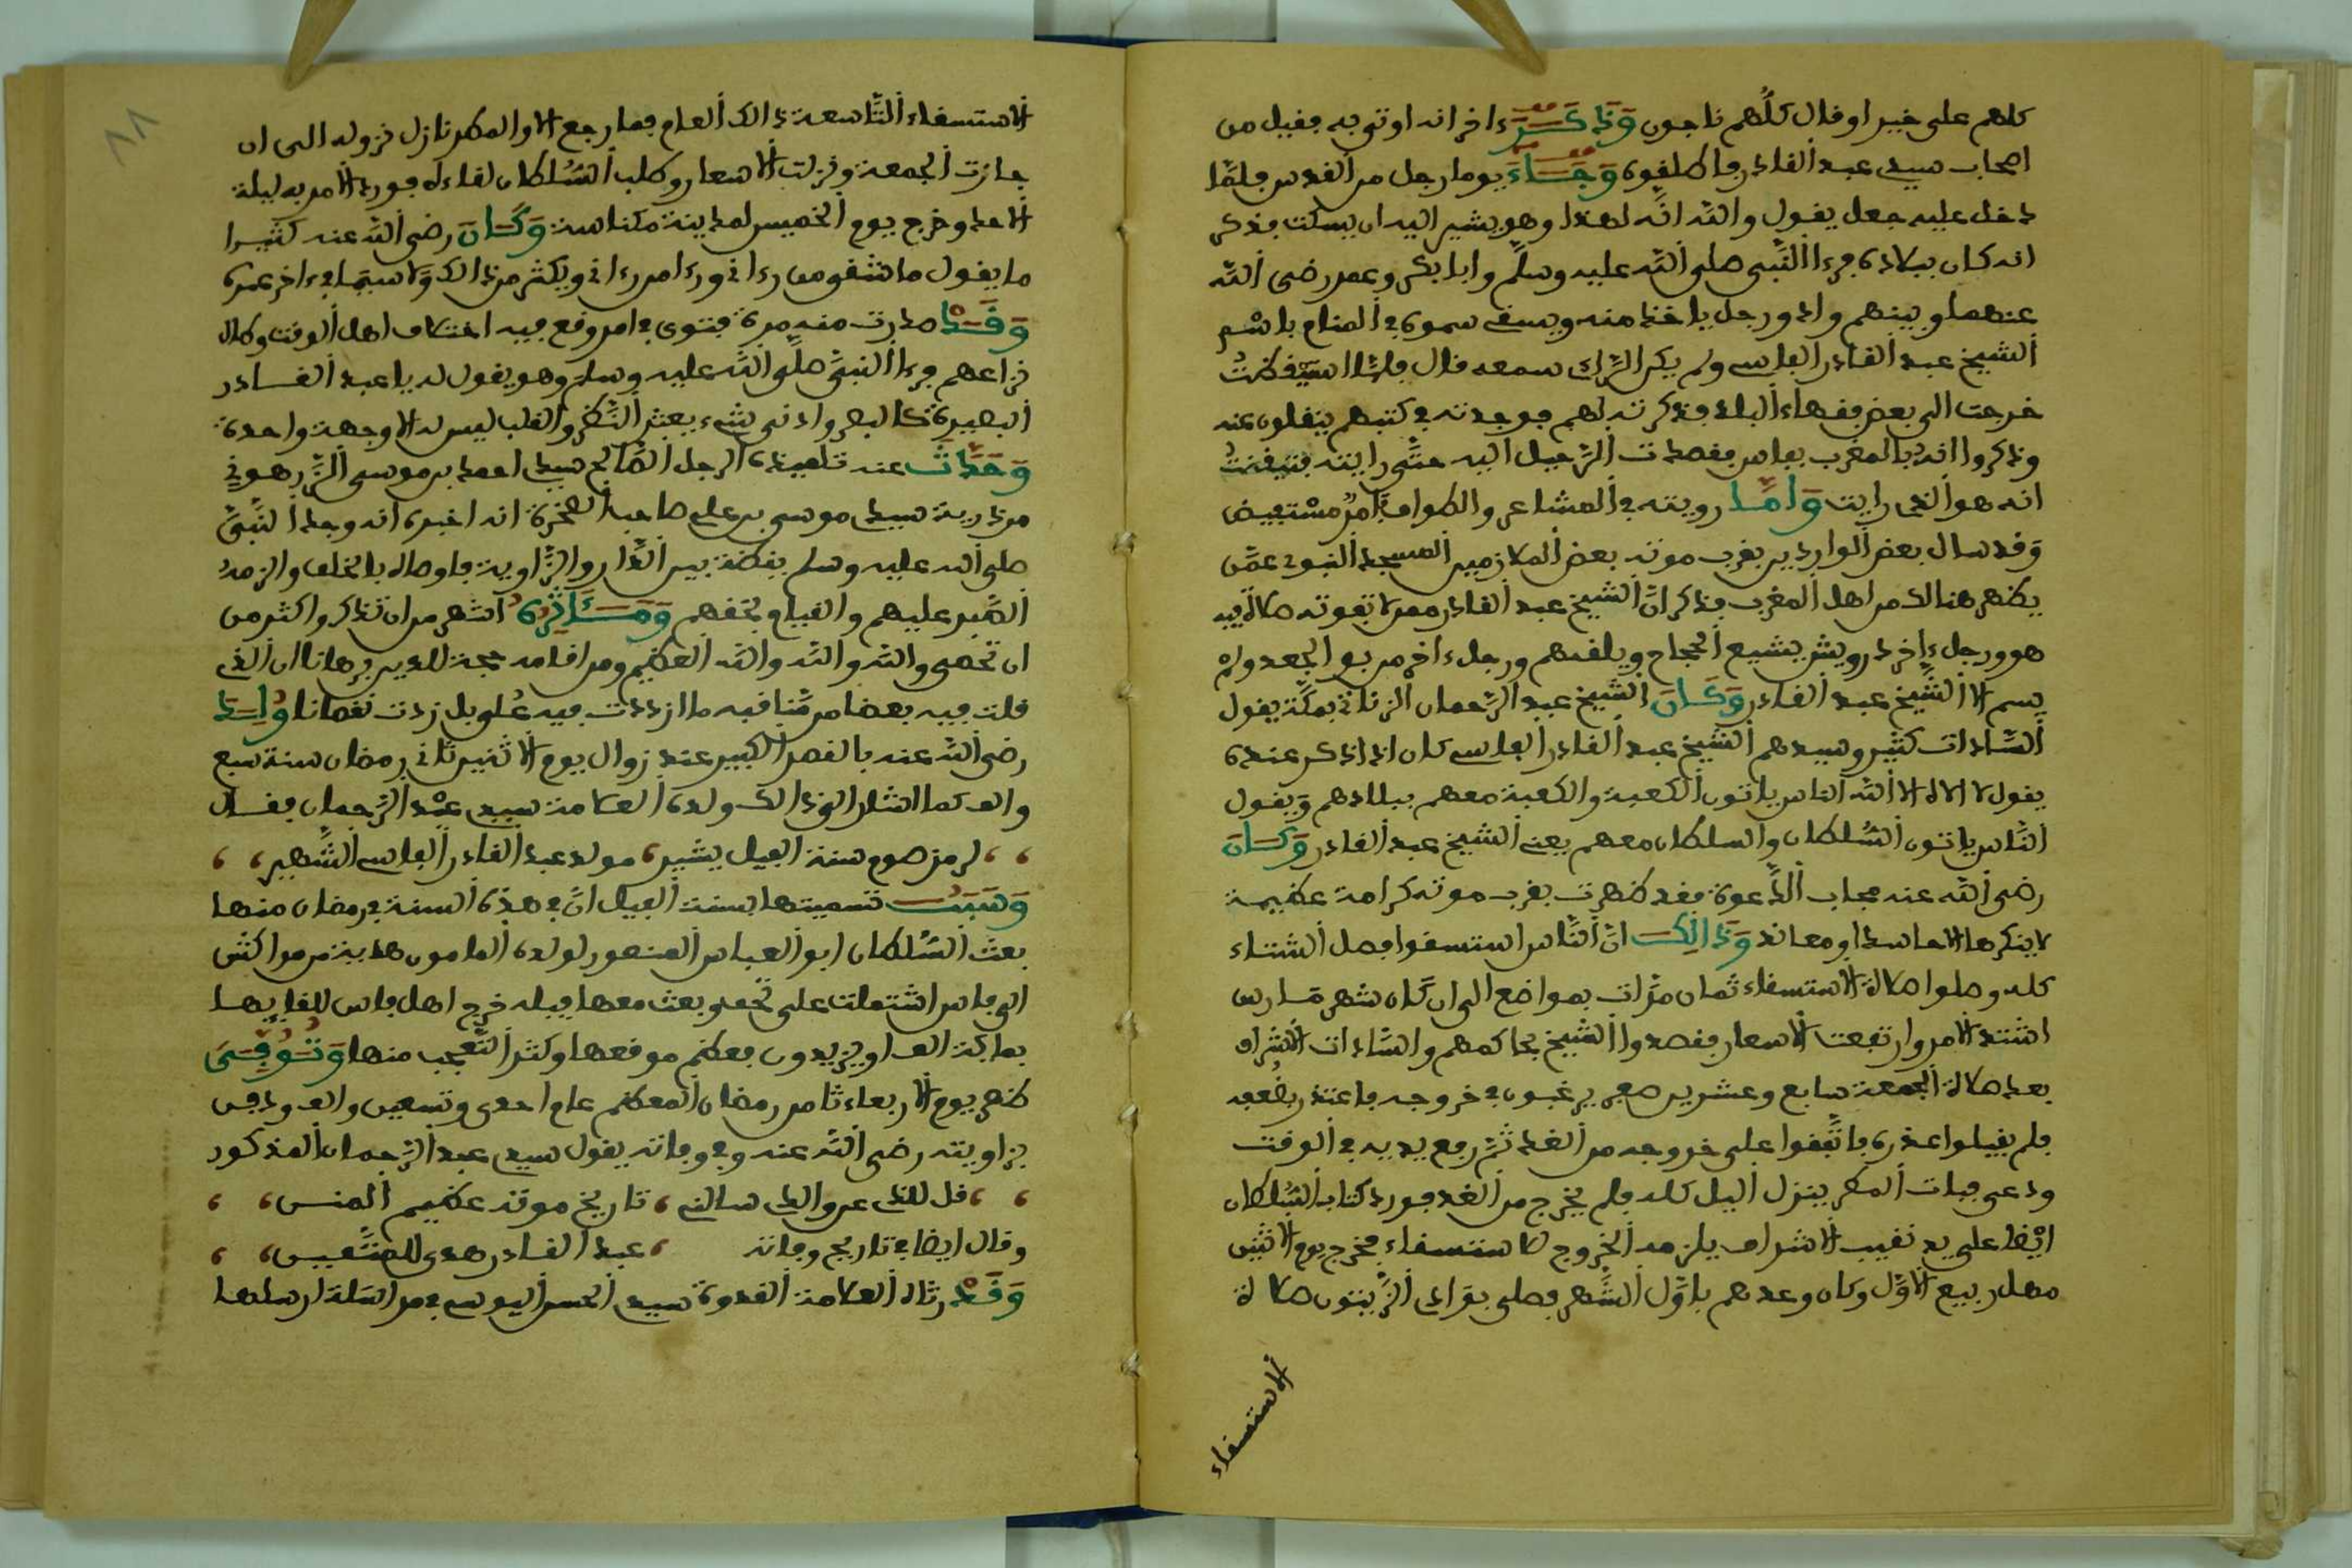 كلهم على خير او قال كلهم ناجون وَذَكَرَ ءاخر انه اوتي به فقيل من
اصحاب سيدي عبد القادر فاطلقوه وَجَاءَ يوما رجل من القدس فلمّا
دخل عليه جعل يقول والله انّه لهذا وهو يشير اليه ان يسكت فذكر
انه كان ببلاده فرءا النّبي صلى الله عليه وسلّم وابا بكر وعمر رضي الله
عنهما وبينهم واد ورجل ياخذ منه ويسقي سموه في المنام باسْم
الشيخ عبد القادر الفاسي ولم يكن الرّاءي سمعه قال فلمّا استيقظتُ
خرجت الى بعض فقهاء البلد فذكرته لهم فوجدته في كتبهم ينقلون عنه
وذكروا انه بالمغرب بفاس فقصدت الرّحيل اليه حتّى رايته فتيقنتُ
انه هو الذي رايت وَأمّا رويته في المشاعر والطواف فامْرٌ مسْتفيض
وَقد سال بعض الواردين بقرب موته بعض الملازمين المسجد النبوي عمّن
يظهر هنالك من اهل المغرب فذكر انّ الشيخ عبد القادر ممن لا تفوته صلاة فيه
هو ورجل ءاخر درويش يشيع الحجاج ويلقىهم ورجل ءاخر من بو الجعد ولمْ
يسم الا الشّيخ عبد القادر وَكَانَ الشيخ عبد الرّحمان الزناتي بمكّة يقول
السّادات كثير وسيدهم الشّيخ عبد القادر الفاسي كان اذا ذكر عنده
يقول لا الاه الا الله الناس ياتون الكعبة والكعبة معهم ببلادهم وَيقول
النّاس ياتون السّلطان والسلطان معهم يعني الشيخ عبد القادر وَكَانَ
رضي الله عنه مجاب الدّعوة فقد ظهرت بقرب موته كرامة عظيمة
لا ينكرها الا حاسد او معاند وَذَالِكَ انّ النّاس استسقوا فصل الشتاء
كله وصلوا صلاة الاستسقاء ثمان مرّات بمواضع الى ان كان شهر مَارس
اشتد الامر وارتفعت الاسعار فقصدوا الشّيخ بحاكمهم والسّادات الاشراف
بعد صلاة الجمعة سابع وعشرين صفر يرغبون في خروجه فاعتذر بضُعفه
فلم يقبلوا عذره فاتّفقوا على خروجه من الغد ثمّ رفع يديه في الوقت
ودعى فبات المطر ينزل اليل كله فلم يخرج من الغد فورد كتاب السّلطان
ايْضا على يد نقيب الاشراف يلزمه الخروج للاستسقاء فخرج يوم الاثنين
مهل ربيع الاوّل وكان وعدهم باوّل الشّهر فصلى بوادي الزّيتون صلاة
الاستسقاء
الاستسقاء التّاسعة ذالك العام فما رجع الا والمطر نازل نزوله الى ان
جازت الجمعة ونزلت الاسعار وطلب السّلطان لقاءه فورد الامر به ليلة
الاحد وخرج يوم الخميس لمدينة مكناسة وَكَانَ رضي الله عنه كثيرا
ما يقول ما شقو من رءاني ورءا من رءاني ويكثر من ذالك وَلا سيّما في ءاخر عمره
وَقَدْ صدرت منه مرة فتوى في امر وقع فيه اختلاف اهل الوقت وطال
نزاعهم فرءا النبيّ صلّى الله عليه وسلم وهو يقول له يا عبد القادر
البصيرة كالبصر وادنى شيء يعثر النّظر والقلب ليس له الا وجهة واحدة
وَحَدَّثَ عنه تلميذه الرجل الصّالح سيدي احمد بن موسى الزّرهوني
من ذرية سيدي موسى بن علي صاحب الصّخرة انه اخبره انه وجد النّبيّ
صلى الله عليه وسلم يقظة بين الدّار والزّاوية فاوصاه بالخلق والزمهُ
الصّبر عليهم والقيام بحقهم وَمَئَاثِرُهُ اشهر من ان تذكر واكثر من
ان تحصى والله والله والله العظيم ومن اقامه حجة للدين برهانا ان الذي
قلت فيه بعضا من مّناقبه ما ازددت فيه غلو بل زدت نقصانا وُلِدَ
رضي الله عنه بالقصر الكبير عند زوال يوم الاثنين ثاني رمضان سنة سبع
والف كما اشار الى ذالك ولده العلامة سيدي عبْد الرّحمان فقال
لرمز صوم سنة الفيل يشير مولد عبد القادر الفاسي الشّهير
وَسَبَبُ تسميتها بسنة الفيل انّ في هذه السنة في رمضان منها
بعث السّلطان ابو العباس المنصور لولده المامون هدية من مراكش
الى فاس اشتملت على تحف وبعث معها فيله خرج اهل فاس للقايها
بماية الف او يزيدون فعظم موقعها وكثر التّعجب منها وَتُوُفِّيَ
ظهر يوم الاربعاء ثامن رمضان المعظم عام احدى وتسعين والف ودفن
بزاويته رضي الله عنه وفي وفاته يقول سيدي عبد الرّحمان المذكور
قل للذي عن والدي سالني تاريخ موته عظيم المنن
وقال ايضا في تاريخ وفاته عبد القادر هدى للمتّقين
وَقَدْ رثاه العلامة القدوة سيدي الحسن اليوسي في مراسَلة ارسلها